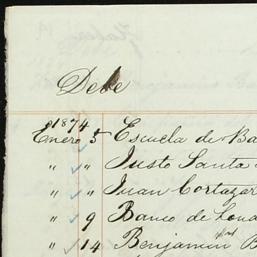 Debe
1874
Enero 5 Escuela de Ba
" " Justo Santa
" " Juan Cortazar
" 9 Banco de Lond
" 14 Benjamin B